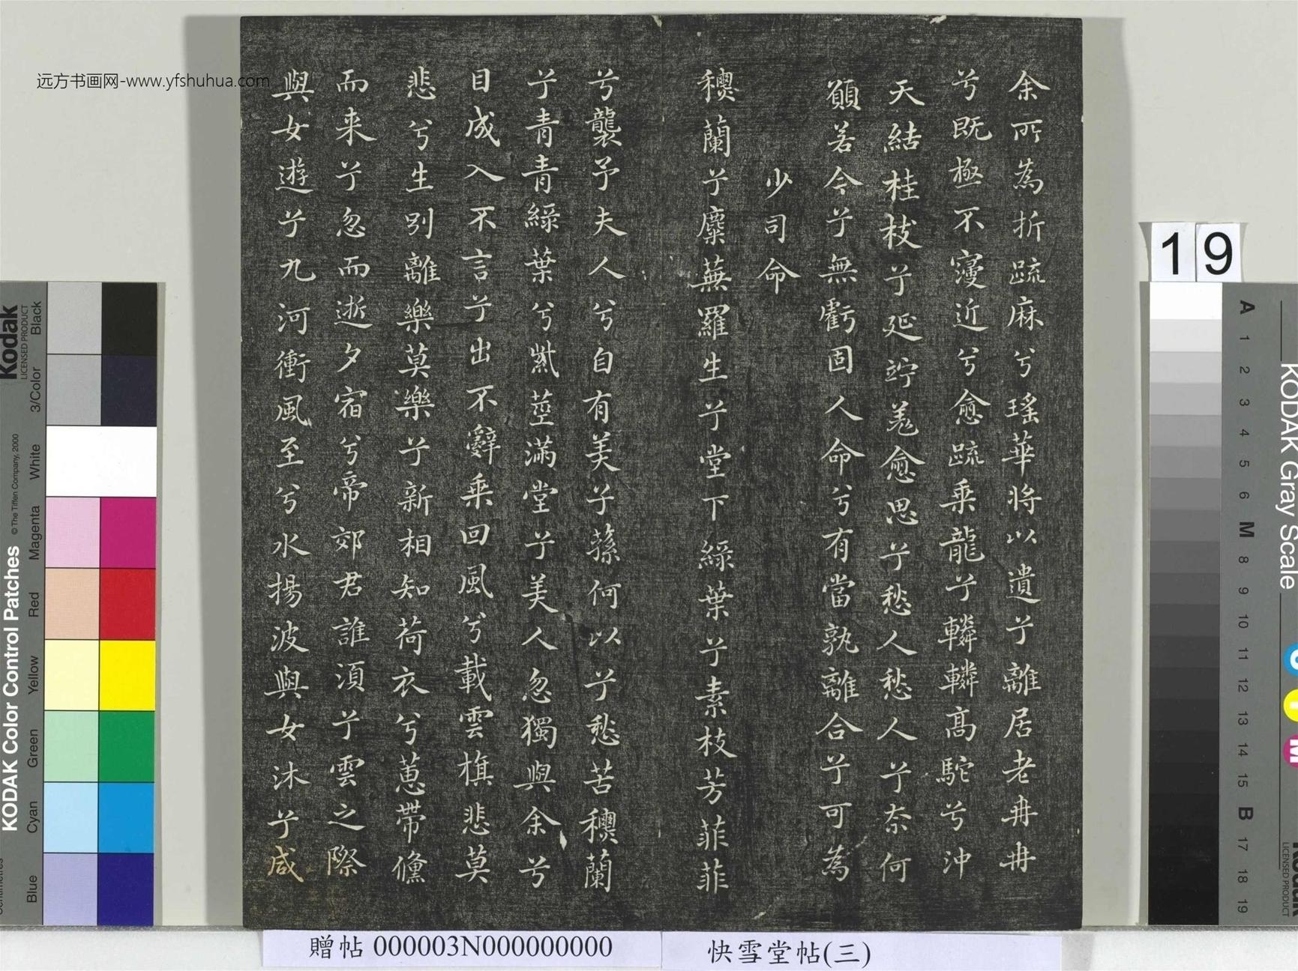 余所為折疏麻兮瑤華將以遺兮離居老冉冉
兮既極不寖近兮愈疏乘龍兮轔轔高駝兮沖
天結桂枝兮延竚羌愈思兮愁人愁人兮奈何
願若今兮無虧固人命兮有當孰離合兮可為
少司命
穮蘭兮麋蕪羅生兮堂下綠葉兮素枝芳菲菲
兮襲予夫人兮自有美子蓀何以兮愁苦穮蘭
兮青青綠葉兮紫莖滿堂兮美人忽獨與余兮
目成入不言兮出不辭乘回風兮載雲旗悲莫
悲兮生別離樂莫樂兮新相知荷衣兮蕙帶儵
而来兮忽而逝夕宿兮帝郊君誰須兮雲之際
與女遊兮九河衝風至兮水揚波與女沐兮咸
远方书画网-www.yfshuhua.com
19
贈帖 000003N000000000
快雪堂帖(三)
KODAK Color Control Patches
Kodak
LICENSED PRODUCT
© The Tiffen Company, 2000
Blue
Cyan
Green
Yellow
Red
Magenta
White
3/Color
Black
KODAK Gray Scale
A 1 2 3 4 5 6 M 8 9 10 11 12 13 14 15 B 17 18 19